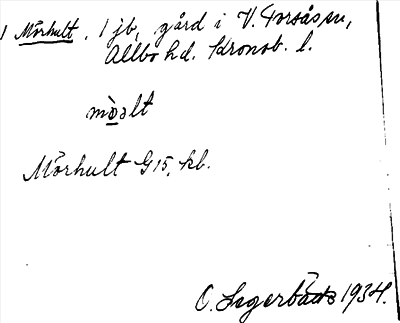 1 Mörhult, 1 jb, gård i V. Torsås sn,
Allbo hd. Kronob. l.
mò̱ǝlt
Mörhult G 15, kb.
O. Lagerbäck 1934.